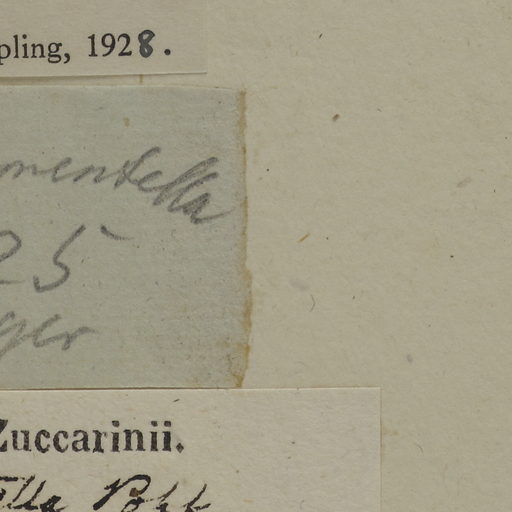 pling, 1928.
mentella
25
ger
Zuccarinii.